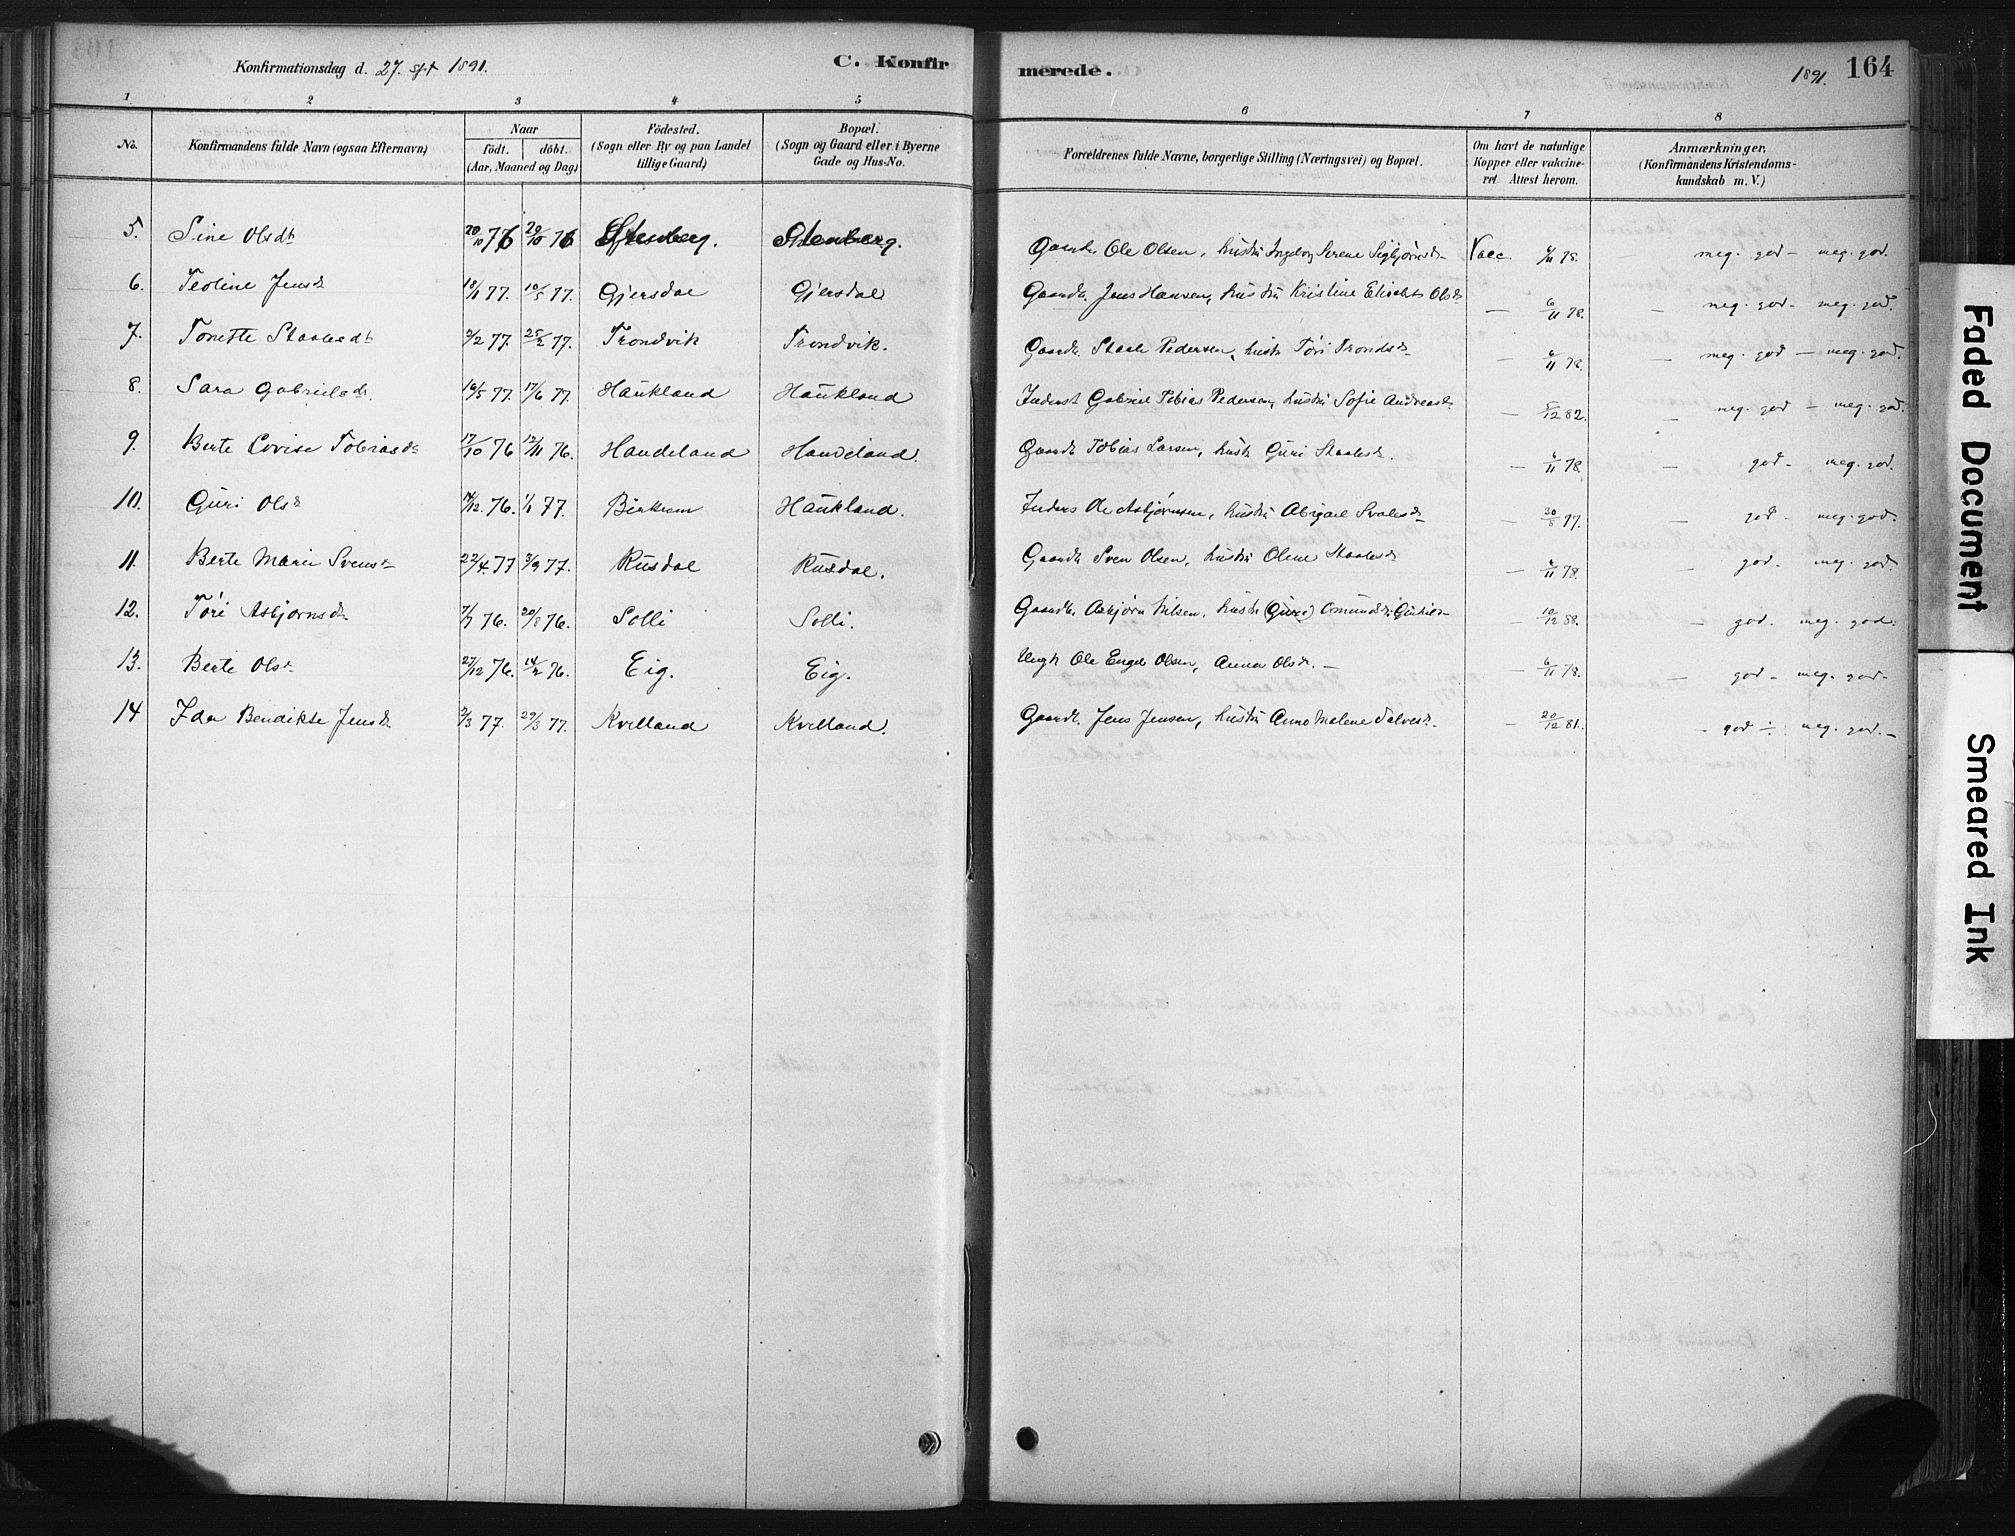 Konfirmationsdag d. 27. spt 1891.
C. Konfirmerede.
1891.
164
1 2 3 4 5 6 7 8
No.
Konfirmandens fulde Navn (ogsaa Efternavn)
Naar
födt. döbt.
(Aar, Maaned og Dag)
Födested.
(Sogn eller By og paa Landet
tillige Gaard)
Bopæl.
(Sogn og Gaard eller i Byerne
Gade og Hus-No.
Forældrenes fulde Navne, borgerlige Stilling (Næringsvei) og Bopæl.
Om havt de naturlige
Kopper eller vakcine-
ret Attest herom.
Anmærkninger.
(Konfirmandens Kristendoms-
kundskab m. V.)
5. Sine Olsdt 20/10 76 29/10 76 Stenberg. Stenberg. Gaardb. Ole Olsen, hustru Ingeborg Serene Sigbjørnsd. Vacc. 6/11 78. meg. god - meg. god.
6. Teoline Jensd 18/1 77. 10/5 77. Gjersdal Gjersdal Gaardb. Jens Hansen, hustru Kristine Elisabet Olsd. — 6/11 78. — meg. god - meg. god.
7. Tonette Staalesdt 2/2 77. 25/2 77. Trondvik Trondvik. Gaardb. Staale Pedersen, hustr Tori Trondsd. — 6/11 78. — meg. god — meg. god.
8. Sara Gabrielsd. 16/5 77. 17/6 77. Haukland Haukland Inderst Gabriel Tobias Pedersen, hustru Sofie Andreasd. — 5/12 82. — meg. god — meg. god.
9. Berte Lovise Tobiasd 17/10 76 12/11 76. Handeland Handeland. Gaardb Tobias Larsen, hustr Guri Staalesd. — 6/11 78. — god - meg. god.
10. Guri Olsd 14/12 76. 1/1 77. Birkrem Haukland. Inders Ole Asbjørnsen, hustru Abigael — 30/8 77. — god - meg. god.
11. Berte Marie Svensd 22/4 77 2/9 77. Rusdal Rusdal. Gaardb Sven Olsen, hustru Olene Staalesd — 6/11 78. — god. meg. god.
12. Tori Asbjørnsd 7/7 76. 20/8 76. Solli Solli. Gaardb. Asbjørn Nilsen, hustr (Guri) — 10/12 88. — god. meg. god.
13. Berte Olsd 27/12 76. 76. Eig. Eig. Ungk Ole Engel Olsen, Anna Olsd. — — 6/11 78. — god - meg. god -
14 Ida Bendikte Jensd 2/3 77. 29/3 77. Kvelland Kvelland. Gaardb. Jens Jensen, hustru Anne Malene Salvesd. — 20/12 81. — god ÷ meg. god. —
Faded Document
Smeared Ink